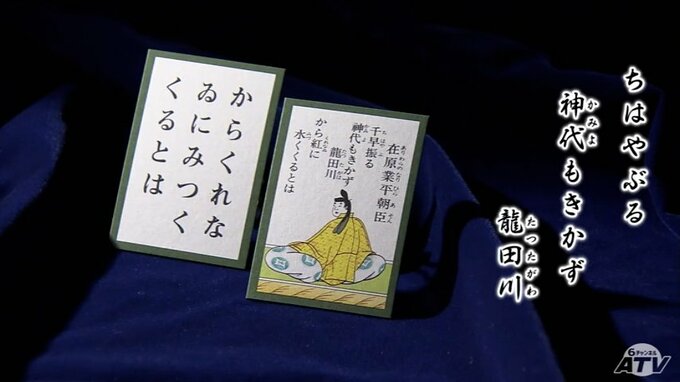 ちはやぶる
かみよ
神代もきかず
たつたがわ
龍田川
在原業平朝臣
千早振る
神代もきかず
龍田川
から紅に
水くくるとは
からくれな
ゐにみつく
くるとは
6チャンネル
ATV